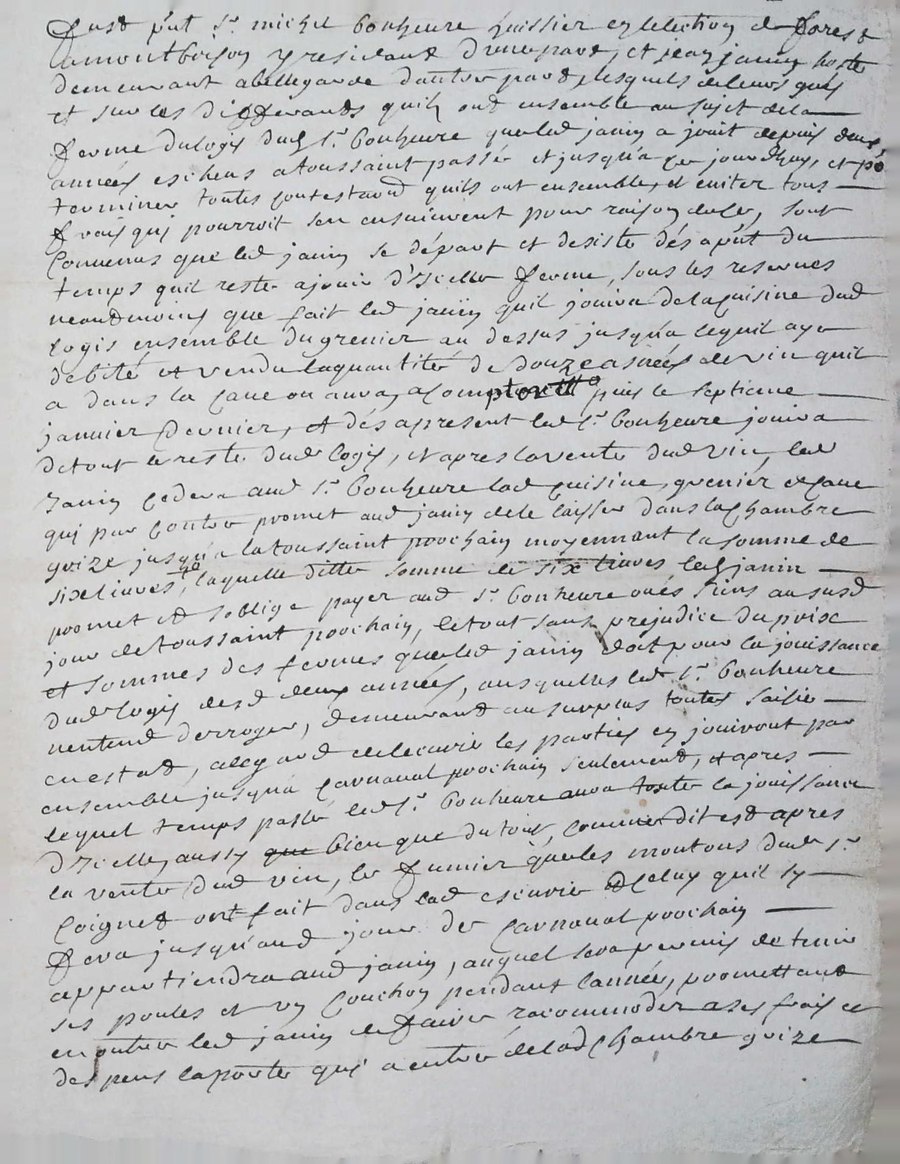 fust p'nt Sr. michel bonheure huissier en lelection de forest
a montbrison y residant d'une part, et jean janin hoste
demeurant a bellegarde dautre part, lesquels de leurs gres
et sur les differands quils ont ensemble au sujet de la
ferme du logis dud Sr. bonheure que led janin a jouit depuis deux
années escheus a toussaint passée et jusqu'a ce jourdhuy, et po
terminer toutes contestaons quils ont ensemble, et eviter tous
frais qui pourroit sen ensuivent pour raison de ce, sont
convenus que led janin se depart et desiste dés ap'nt du
temps quil reste a jouir d'Icelle ferme, sous les reserves
neandmoins que fait led janin quil jouira de la cuisine dud
logis ensemble du grenier au dessus jusqu'a ce quil aye
debité et vendu la quantité de douze asnées de vin quil
a dans la cave ou aura, a compter puis le septieme
janvier dernier, et dés a present led Sr. bonheure jouira
de tout le reste dud logis, et apres la vente dud vin, led
Janin cedera aud Sr. bonheure lad cuisine, grenier et cave
qui par contre promet aud janin de le laisser dans la chambre
grize jusqu'a la toussaint prochain moyennant la somme de
six livres, laquelle ditte somme de six livres led janin
promet et soblige payer aud Sr. bonheure ou és siens au susd
jour de toussaint prochain, le tout sans prejudice du prix
et sommes des fermes que led janin doit pour la jouissance
dud logis desd deux années, ausquelles led Sr. bonheure
nentend derroger, demeurand au surplus toutes saisie
en estat, a legard de lecurie les parties en jouiront par
ensemble jusqu'a carnaval prochain seulement, et apres
lequel temps passé led Sr. bonheure aura toute la jouissance
d'Icelle, aussy que bien que du toit, comme dit est apres
la vente dud vin, le fumier que les moutons dud Sr.
Coignet ont fait dans lad escurie et celuy quil sy
fera jusqu'aud jour de carnaval prochain
appartiendra aud janin, auquel sera permis de tenir
ses poules et un couchon pendant l'année, promettant
en outre led janin de faire racommoder a ses frais et
despens la porte qui a entre de lad chambre grize